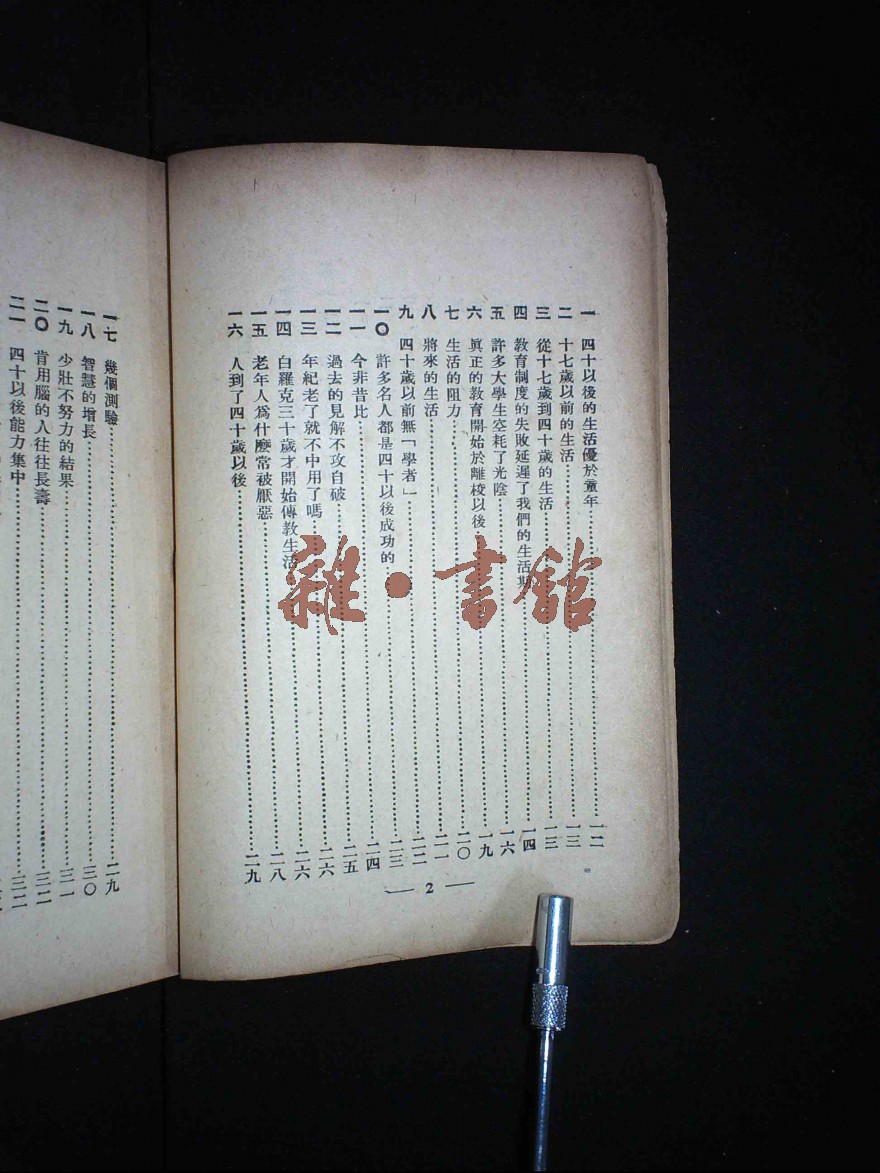 一 四十以後的生活優於童年……一二
二 十七歲以前的生活……一三
三 從十七歲到四十歲的生活……一三
四 教育制度的失敗延遲了我們的生活期……一四
五 許多大學生空耗了光陰……一六
六 眞正的教育開始於離校以後……一九
七 生活的阻力……二〇
八 將來的生活……二一
九 四十歲以前無「學者」……二二
一〇 許多名人都是四十以後成功的……二三
一一 今非昔比……二四
一二 過去的見解不攻自破……二五
一三 年紀老了就不中用了嗎……二六
一四 白羅克三十歲才開始傳教生活……二六
一五 老年人爲什麼常被厭惡……二八
一六 人到了四十歲以後……二九
— 2 —
一七 幾個測驗……二九
一八 智慧的增長……三〇
一九 少壯不努力的結果……三一
二〇 肯用腦的人往往長壽……三二
二一 四十以後能力集中……三二
雜·書館